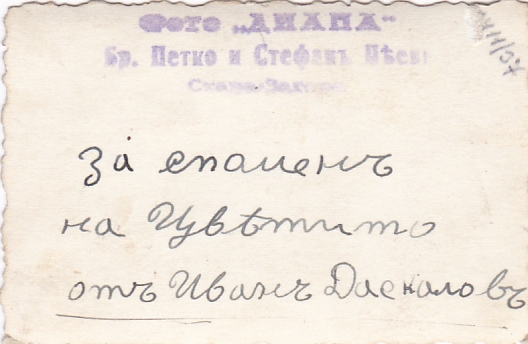 Фото „ДИАНА“
Бр. Петко и Стефанъ Пѣеви
Стара-Загора
За споменъ
на Цвѣтито
отъ Иванъ Даскаловъ